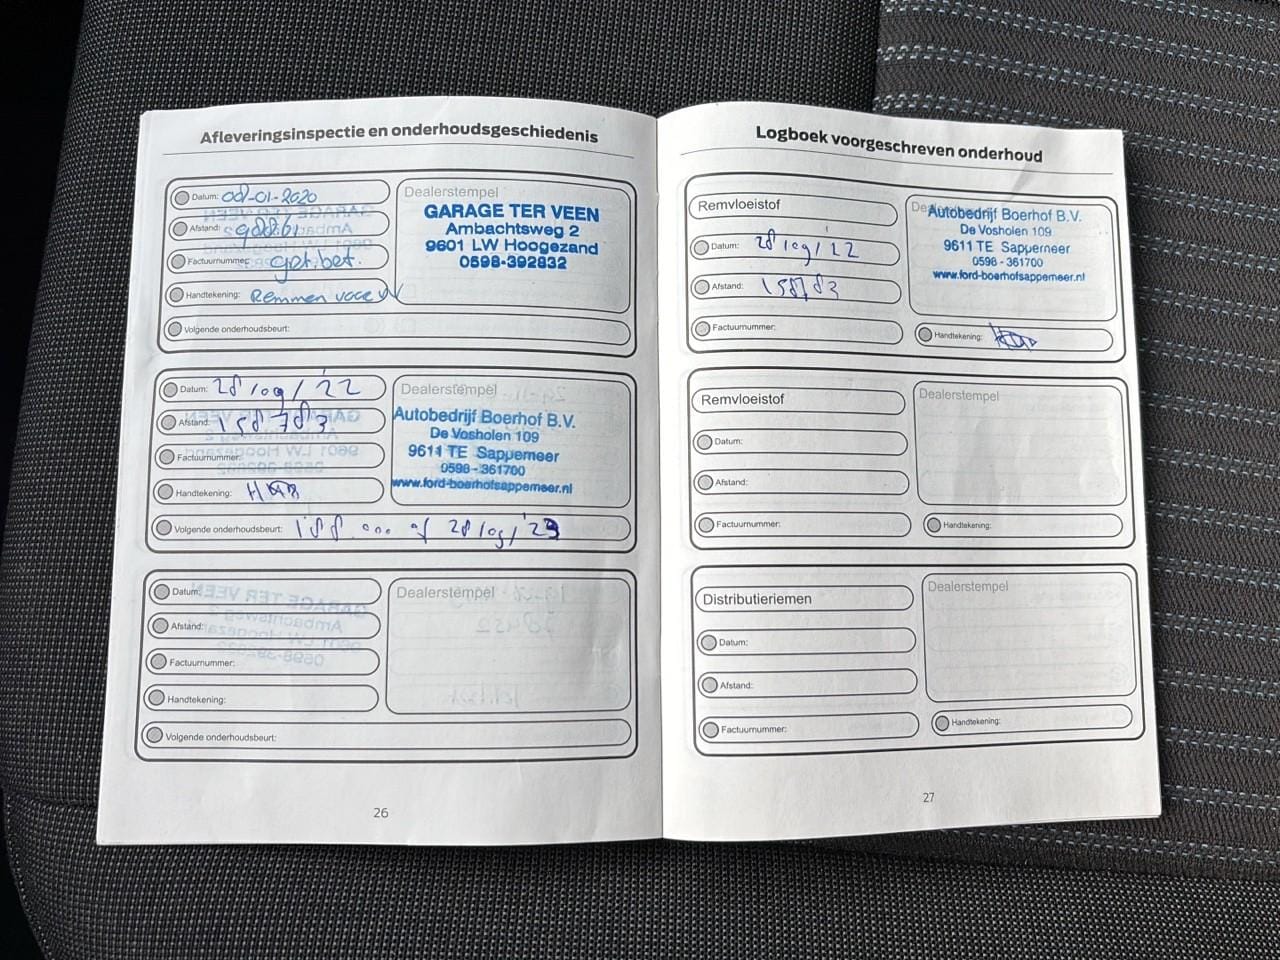 Afleveringsinspectie en onderhoudsgeschiedenis
Datum: 08-01-2020
Afstand: 90861
Factuurnummer:
Handtekening: Remmen voor V
Volgende onderhoudsbeurt:
Dealerstempel
GARAGE TER VEEN
Ambachtsweg 2
9601 LW Hoogezand
0598-392832
Datum: 28/09/'22
Afstand: 158783
Factuurnummer:
Handtekening:
Volgende onderhoudsbeurt: 188.000 of 28/09/'23
Dealerstempel
Autobedrijf Boerhof B.V.
De Vosholen 109
9611 TE Sappemeer
0598-361700
www.ford-boerhofsappemeer.nl
Datum:
Afstand:
Factuurnummer:
Handtekening:
Volgende onderhoudsbeurt:
Dealerstempel
26
Logboek voorgeschreven onderhoud
Remvloeistof
Datum: 28/09/'22
Afstand: 158783
Factuurnummer:
Autobedrijf Boerhof B.V.
De Vosholen 109
9611 TE Sappemeer
0598-361700
www.ford-boerhofsappemeer.nl
Handtekening:
Remvloeistof
Datum:
Afstand:
Factuurnummer:
Dealerstempel
Handtekening:
Distributieriemen
Datum:
Afstand:
Factuurnummer:
Dealerstempel
Handtekening:
27